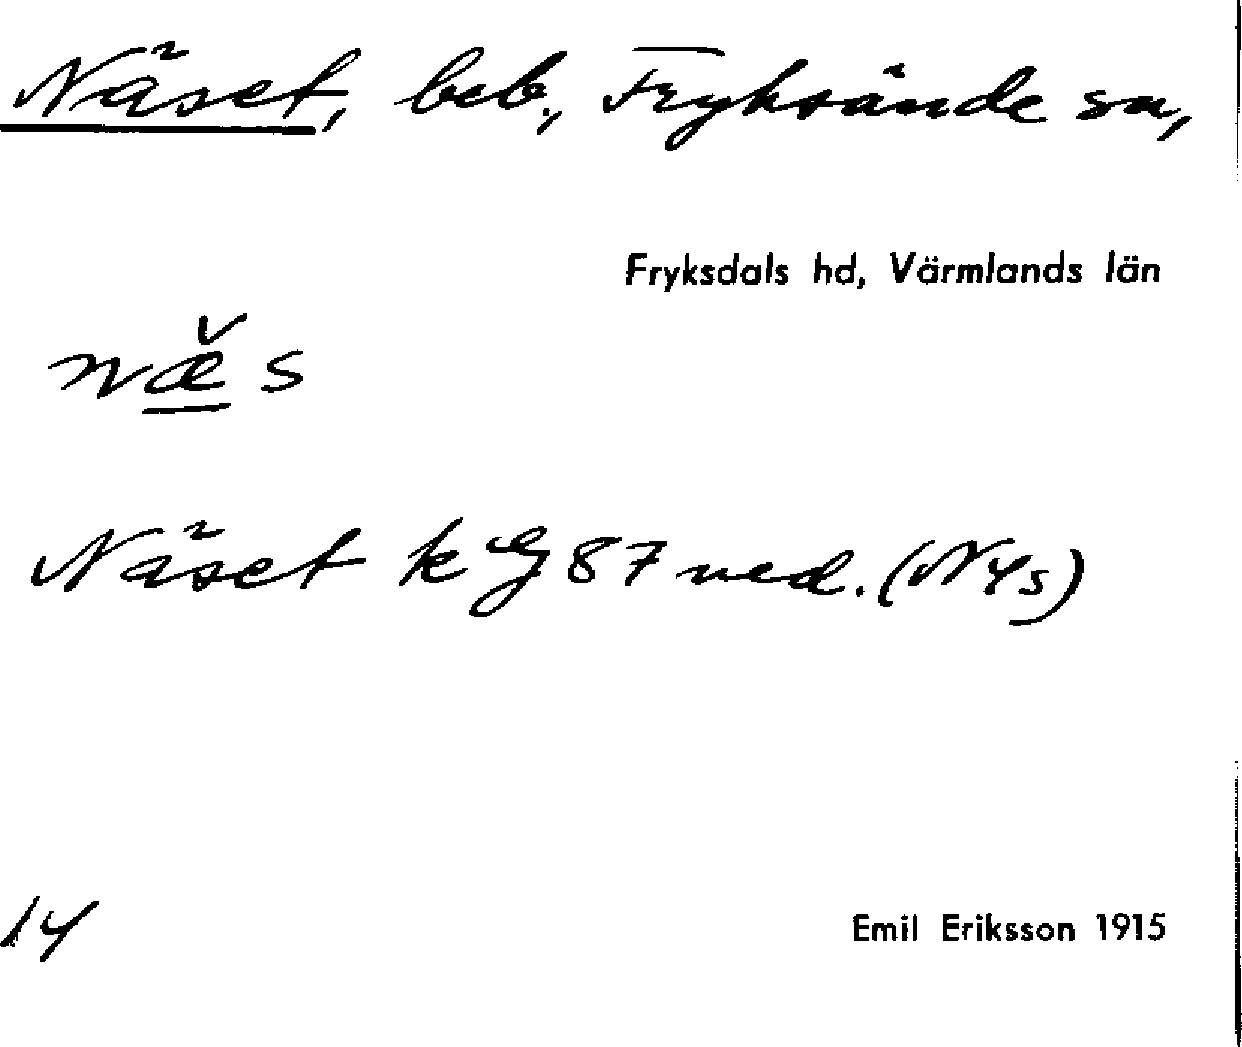 Näset, beb., Fryksände sn,
Fryksdals hd, Värmlands län
næ̌s
Näset k G 87 ned. (N4s)
14
Emil Eriksson 1915